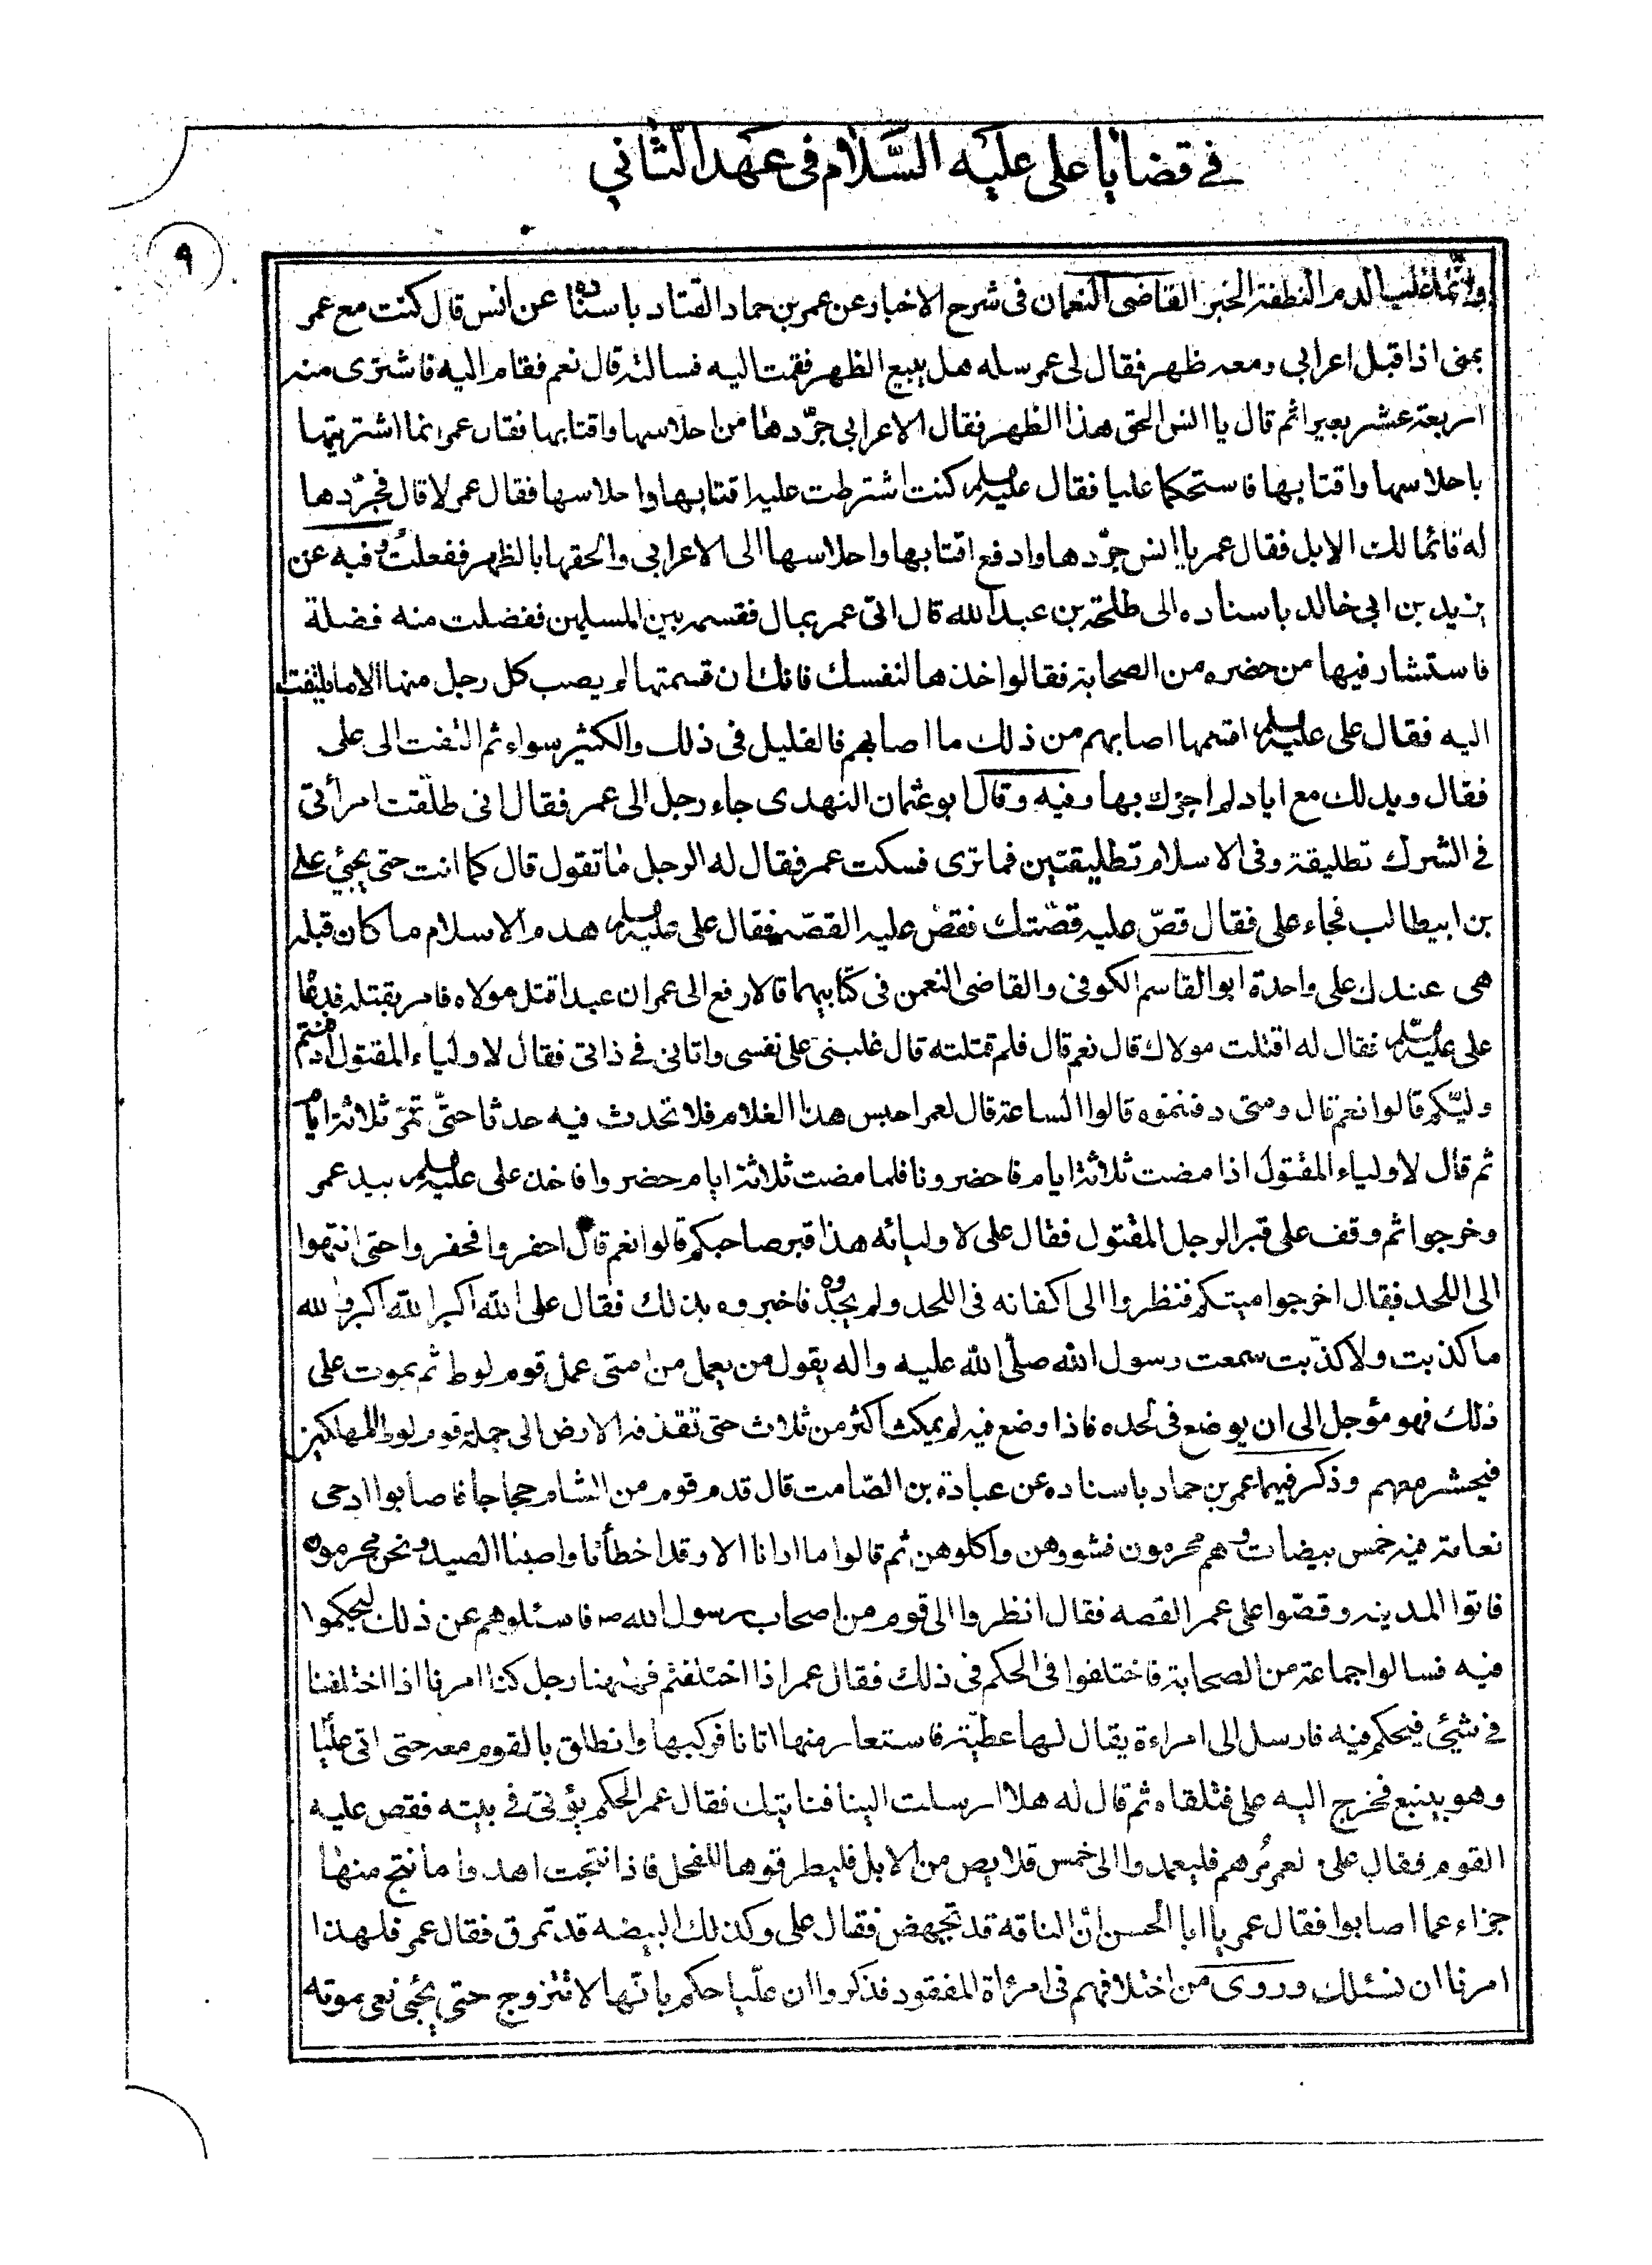 في قضايا على عليه السَّلام فى عهد الثاني
٩
وانّما غلب الدم النطفة الخبر القاضى النعمان فى شرح الاخبار عن عمر بن حماد القتاد باسناده عن انس قال كنت مع عمر
بمنى اذ اقبل اعرابي ومعه ظهر فقال لى عمر سله هل يبيع الظهر فقمت اليه فسالته قال نعم فقام اليه فاشترى منه
اربعة عشر بعيرا ثم قال يا انس الحق هذا الظهر فقال الاعرابي جرّدها من احلاسها واقتابها فقال عمر انما اشتريتها
باحلاسها واقتابها فاستحكما عليا فقال عليه السلم كنت اشترطت عليه اقتابها واحلاسها فقال عمر لا قال فجرّدها
له فانما لك الابل فقال عمر يا انس جرّدها وادفع اقتابها واحلاسها الى الاعرابى والحقها بالظهر ففعلت وفيه عن
يزيد بن ابى خالد باسناده الى طلحة بن عبد الله قال اتى عمر بمال فقسمه بين المسلمين ففضلت منه فضلة
فاستشار فيها من حضره من الصحابة فقالوا خذها لنفسك فانك ان قسمتها لم يصب كل رجل منها الا ما يلتفت
اليه فقال على عليه السلم اقسمها اصابهم من ذلك ما اصابهم فالقليل فى ذلك والكثير سواء ثم التفت الى على
فقال ويد لك مع اياد لم اجزك بها وفيه وقال ابو عثمان النهدى جاء رجل الى عمر فقال انى طلّقت امرأتى
في الشرك تطليقة وفى الاسلام تطليقتين فما ترى فسكت عمر فقال له الرجل ما تقول قال كما انت حتى يجيئ على
بن ابيطالب فجاء على فقال قصّ عليه قصّتك فقص عليه القصه فقال على عليه السلم هدم الاسلام ما كان قبله
هى عندك على واحدة ابو القاسم الكوفى والقاضى النعمن فى كتابيهما قالا رفع الى عمر ان عبدا قتل مولاه فامر بقتله فدعا
على عليه السلم فقال له اقتلت مولاك قال نعم قال فلم قتلته قال غلبنى على نفسى واتانى في ذاتى فقال لاولياء المقتول ادفنتم
وليّكم قالوا نعم قال ومتى دفنتموه قالوا الساعة قال لعمر احبس هذا الغلام فلا تحدث فيه حدثا حتّى تمرّ ثلاثة ايام
ثم قال لاولياء المقتول اذا مضت ثلاثة ايام فاحضرونا فلما مضت ثلاثة ايام حضروا فاخذ على عليه السلم بيد عمر
وخرجوا ثم وقف على قبر الرجل المقتول فقال على لاوليائه هذا قبر صاحبكم قالوا نعم قال احفروا فحفروا حتى انتهوا
الى اللحد فقال اخرجوا ميتكم فنظروا الى اكفانه فى اللحد ولم يجدوه فاخبروه بذلك فقال على الله اكبر الله اكبر والله
ما كذبت ولا كذّبت سمعت رسول الله صلى الله عليه واله يقول من يعمل من امتى عمل قوم لوط ثم يموت على
ذلك فهو مؤجل الى ان يوضع فى لحده فاذا وضع فيه لم يمكث اكثر من ثلاث حتى تقذفه الارض الى جملة قوم لوط المهلكين
فيحشر معهم وذكر فيها عمر بن حماد باسناده عن عبادة بن الصّامت قال قدم قوم من الشام حجاجا فاصابوا ادحى
نعامة فيه خمس بيضات وهم محرمون فشووهن واكلوهن ثم قالوا ما ارانا الا وقد اخطأنا واصبنا الصيد ونحن محرمون
فاتوا المدينه وقصّوا على عمر القصه فقال انظروا الى قوم من اصحاب رسول الله ص فاسئلوهم عن ذلك ليحكموا
فيه فسالوا جماعة من الصحابة فاختلفوا فى الحكم فى ذلك فقال عمر اذا اختلفتم فههنا رجل كنا امرنا اذا اختلفنا
في شيئ فيحكم فيه فارسل الى امراءة يقال لها عطيّة فاستعار منها اتانا فركبها وانطلق بالقوم معه حتى اتى عليّا
وهو بينبع فخرج اليه على فتلقاه ثم قال له هلا ارسلت الينا فناتيك فقال عمر الحكم يؤتى في بيته فقص عليه
القوم فقال على لعمر مُرهم فليعمدوا الى خمس قلايص من الابل فليطرقوها للفحل فاذا نتجت اهدوا ما نتج منها
جزاء عما اصابوا فقال عمر يا ابا الحسن انّ الناقه قد تجهض فقال على وكذلك البيضه قد تمرق فقال عمر فلهذا
امرنا ان نسئلك وروى من اختلافهم فى امرأة المفقود فذكروا ان عليّا حكم بانّها لا تتزوج حتى يجئ نعى موته